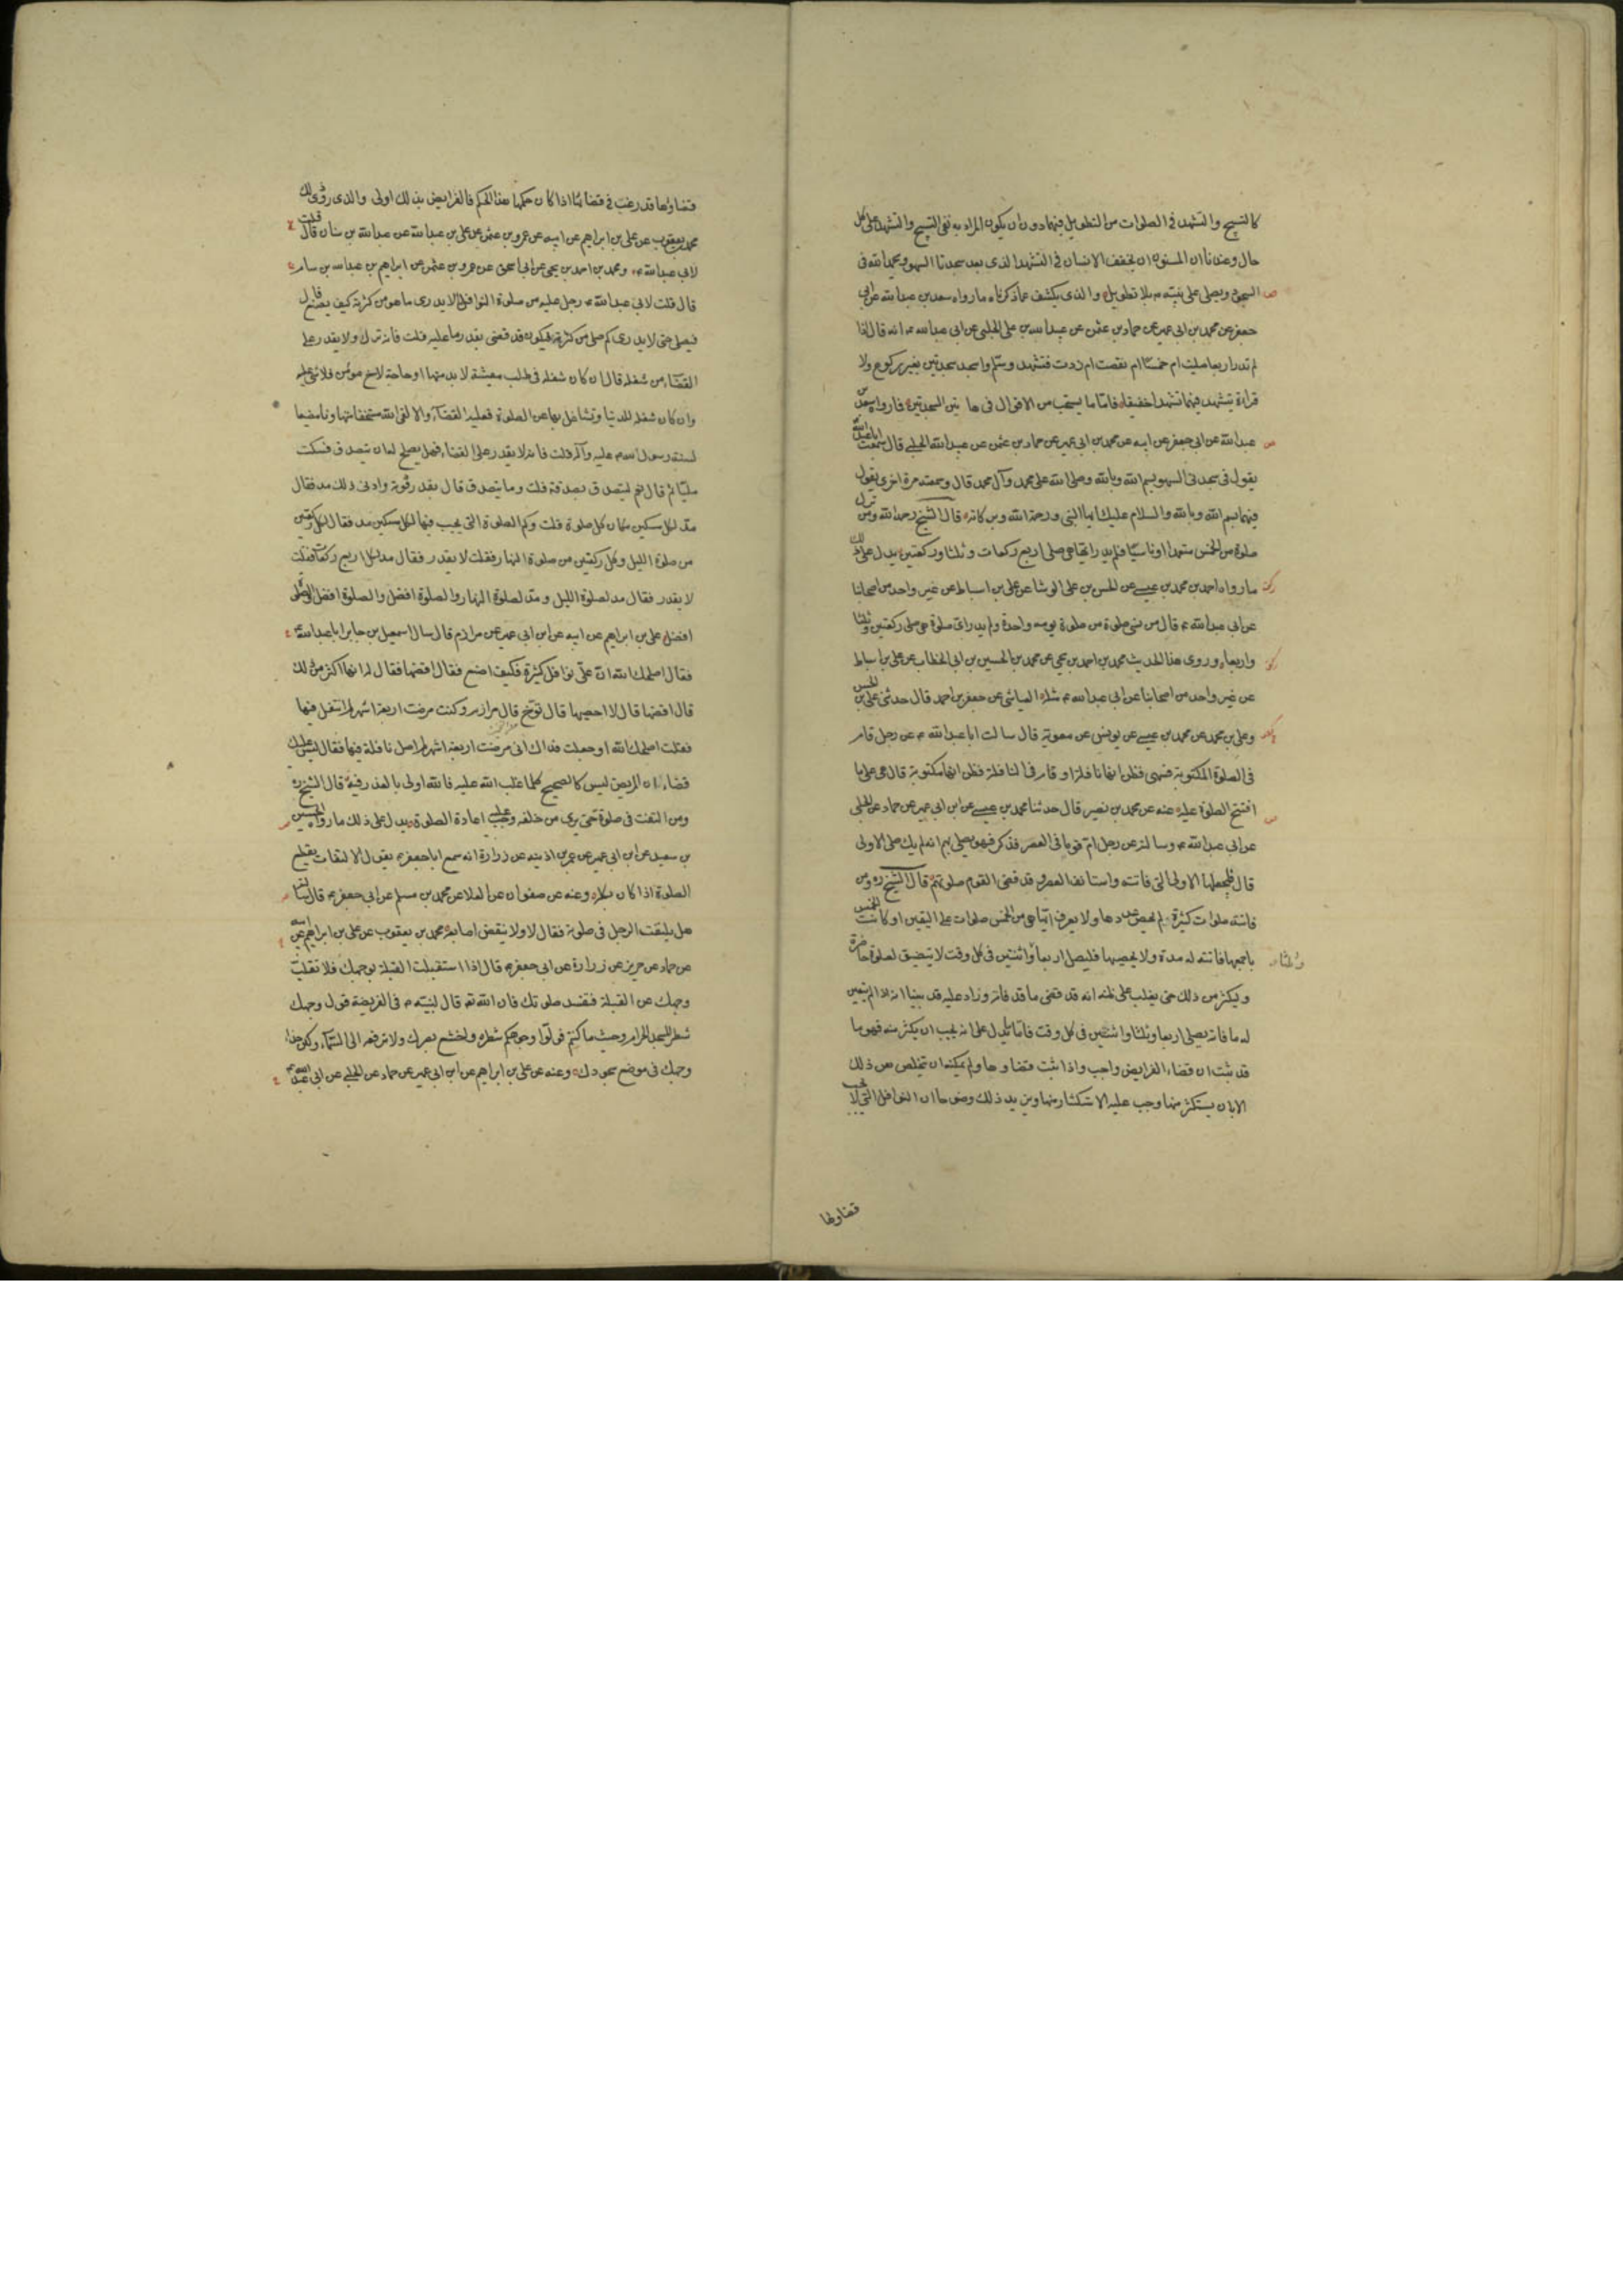 كالتسبيح والتشهد في الصلوات من التطويل فيهما دون ان يكون المراد به نفي التسبيح والتشهد على كل
حال وعندنا ان المسنون ان يخفف الانسان في التشهد الذي بعد سجدتا السهو ويحمد الله في
السجود ويصلي على نبيه م بلا تطويل والذي يكشف عما ذكرناه ما رواه سعد بن عبد الله عن ابي
جعفر عن محمد بن ابي عمير عن حماد بن عثمن عن عبيد الله بن علي الحلبي عن ابي عبد الله ع انه قال اذا
لم تدر اربعا صليت ام خمسا ام نقصت ام زدت فتشهد وسلم واسجد سجدتين بغير ركوع ولا
قراءة يتشهد فيهما تشهدا خفيفا فاما ما يستحب من الاقوال في ها تين السجدتين فما رواه سعد بن
عبد الله عن ابي جعفر عن ابيه عن محمد بن ابي عمير عن حماد بن عثمن عن عبيد الله الحلبي قال سمعت ابا عبد الله
يقول في سجدتى السهو بسم الله وبالله وصلى الله على محمد وآل محمد قال وسمعته مرة اخرى يقول
فيهما بسم الله وبالله والسلام عليك ايها النبي ورحمة الله وبركاته قال الشيخ رحمه الله ومن ترك
صلوة من الخمس متعمدا او ناسيا فلم يدر ايتها هي صلى اربع ركعات وثلثا وركعتين يدل على ذلك
ما رواه احمد بن محمد بن عيسى عن الحسن بن علي الوشا عن علي بن اسباط عن غير واحد من اصحابنا
عن ابي عبد الله ع قال من نسي صلوة من صلوة يومه واحدة ولم يدر اي صلوة هي صلى ركعتين وثلثا
واربعا وروى هذا الحديث محمد بن احمد بن يحيى عن محمد بن الحسين بن ابي الخطاب عن علي بن اسباط
عن غير واحد من اصحابنا عن ابي عبد الله ع مثله العياشي عن جعفر بن احمد قال حدثني علي بن الحسن
وعلي بن محمد عن محمد بن عيسى عن يونس عن معوية قال سالت ابا عبد الله ع عن رجل قام
في الصلوة المكتوبة فسهى فظن انها نافلة او قام في النافلة فظن انها مكتوبة قال هي على ما
افتتح الصلوة عليه عنه عن محمد بن نصير قال حدثنا محمد بن عيسى عن ابن ابي عمير عن حماد عن الحلبي
عن ابي عبد الله ع وسالته عن رجل ام قوما في العصر فذكر فهو يصلي بهم انه لم يك صلى الاولى
قال فليجعلها الاولى التي فاتته واستانف العصر وقد قضى القوم صلوتهم قال الشيخ ره ومن
فاتته صلوات كثيرة لم يحص عددها ولا يعرف ايتها هي من الخمس صلوات على اليقين او كانت الخمس
باجمعها فاتته له مدة ولا يحصيها فليصل اربعا واثنتين في كل وقت لا يتضيق لصلوة حاضرة
وثلثا
ويكثر من ذلك حتى يغلب على ظنه انه قد قضى ما قد فاته وزاد عليه قد بينا انه اذا لم يتعين
له ما فاته يصلي اربعا وثلثا واثنتين في كل وقت فاما ما يدل على انه يجب ان يكثر منه فهو ما
قد ثبت ان قضاء الفرايض واجب واذا ثبت قضاوها ولم يمكنه ان يتخلص من ذلك
الا بان يستكثر منها وجب عليه الاستكثار منها ويزيد ذلك وضوحا ان النوافل التي لا يجب
قضاوها
قضاوها قد رغب في قضائها اذا كان حكمها هذا الحكم فالفرايض بذلك اولى والذي روى ذلك
محمد بن يعقوب عن علي بن ابراهيم عن ابيه عن عمرو بن عثمن عن علي بن عبد الله عن عبد الله بن سنان قال قلت
لابي عبد الله ع ومحمد بن احمد بن يحيى عن ابي اسحق عن عمرو بن عثمن عن ابراهيم بن عبد الله بن سام
قال قلت لابي عبد الله ع رجل عليه من صلوة النوافل لا يدري ما هو من كثرته كيف يصنع قال
فيصلي حتى لا يدري كم صلى من كثرته فيكون قد قضى بقدر ما عليه قلت فانه ترك ولا يقدر على
القضاء من شغله قال ان كان شغله في طلب معيشة لا بد منها او حاجة لاخ مومن فلا شئ عليه
وان كان شغله للدنيا وتشاغل بها عن الصلوة فعليه القضاء والا لقى الله مستخفا متهاونا مضيعا
لسنة رسول الله صلى عليه وآله قلت فانه لا يقدر على القضاء فهل يصلح له ان يتصدق فسكت
مليا ثم قال نعم ليتصدق بصدقة قلت وما يتصدق قال بقدر قوته وادنى ذلك مد فقال
مد لكل مسكين مكان كل صلوة قلت وكم الصلوة التي يجب فيها لكل مسكين مد فقال لكل ركعتين
من صلوة الليل وكل ركعتين من صلوة النهار فقلت لا يقدر فقال مد لكل اربع ركعات فقلت
لا يقدر فقال مد لصلوة الليل ومد لصلوة النهار والصلوة افضل والصلوة افضل والصلوة
افضل علي بن ابراهيم عن ابيه عن ابن ابي عمير عن مرازم قال سال اسمعيل بن جابر ابا عبد الله ع
فقال اصلحك الله ان علي نوافل كثيرة فكيف اصنع فقال اقضها فقال له انها اكثر من ذلك
قال اقضها قال لا احصيها قال توخ قال مرازم وكنت مرضت اربعة اشهر لم اتنفل فيها
فقلت اصلحك الله او جعلت فداك اني مرضت اربعة اشهر لم اصل نافلة فيها فقال ليس عليك
قضاء ان المريض ليس كالصحيح كلما غلب الله عليه فالله اولى بالعذر فيه قال الشيخ ره
ومن التفت في صلوة حتى يرى من خلفه وجب عليه اعادة الصلوة يدل على ذلك ما رواه الحسين
بن سعيد عن ابن ابي عمير عن عمر بن اذينه عن زرارة انه سمع ابا جعفر ع يقول الالتفات يقطع
الصلوة اذا كان بكله وعنه عن صفوان عن العلا عن محمد بن مسلم عن ابي جعفر ع قال سالته
هل يلتفت الرجل في صلوته فقال لا ولا ينقض اصابعه محمد بن يعقوب عن علي بن ابراهيم عن ابيه
عن حماد عن حريز عن زرارة عن ابي جعفر ع قال اذا استقبلت القبلة بوجهك فلا تقلب
وجهك عن القبلة فتفسد صلوتك فان الله تع قال لنبيه م في الفريضة فول وجهك
شطر المسجد الحرام وحيث ما كنتم فولوا وجوهكم شطره واخشع ببصرك ولا ترفعه الى السماء وليكن حذاء
وجهك في موضع سجودك وعنه عن علي بن ابراهيم عن ابن ابي عمير عن حماد عن الحلبي عن ابي عبد الله ع